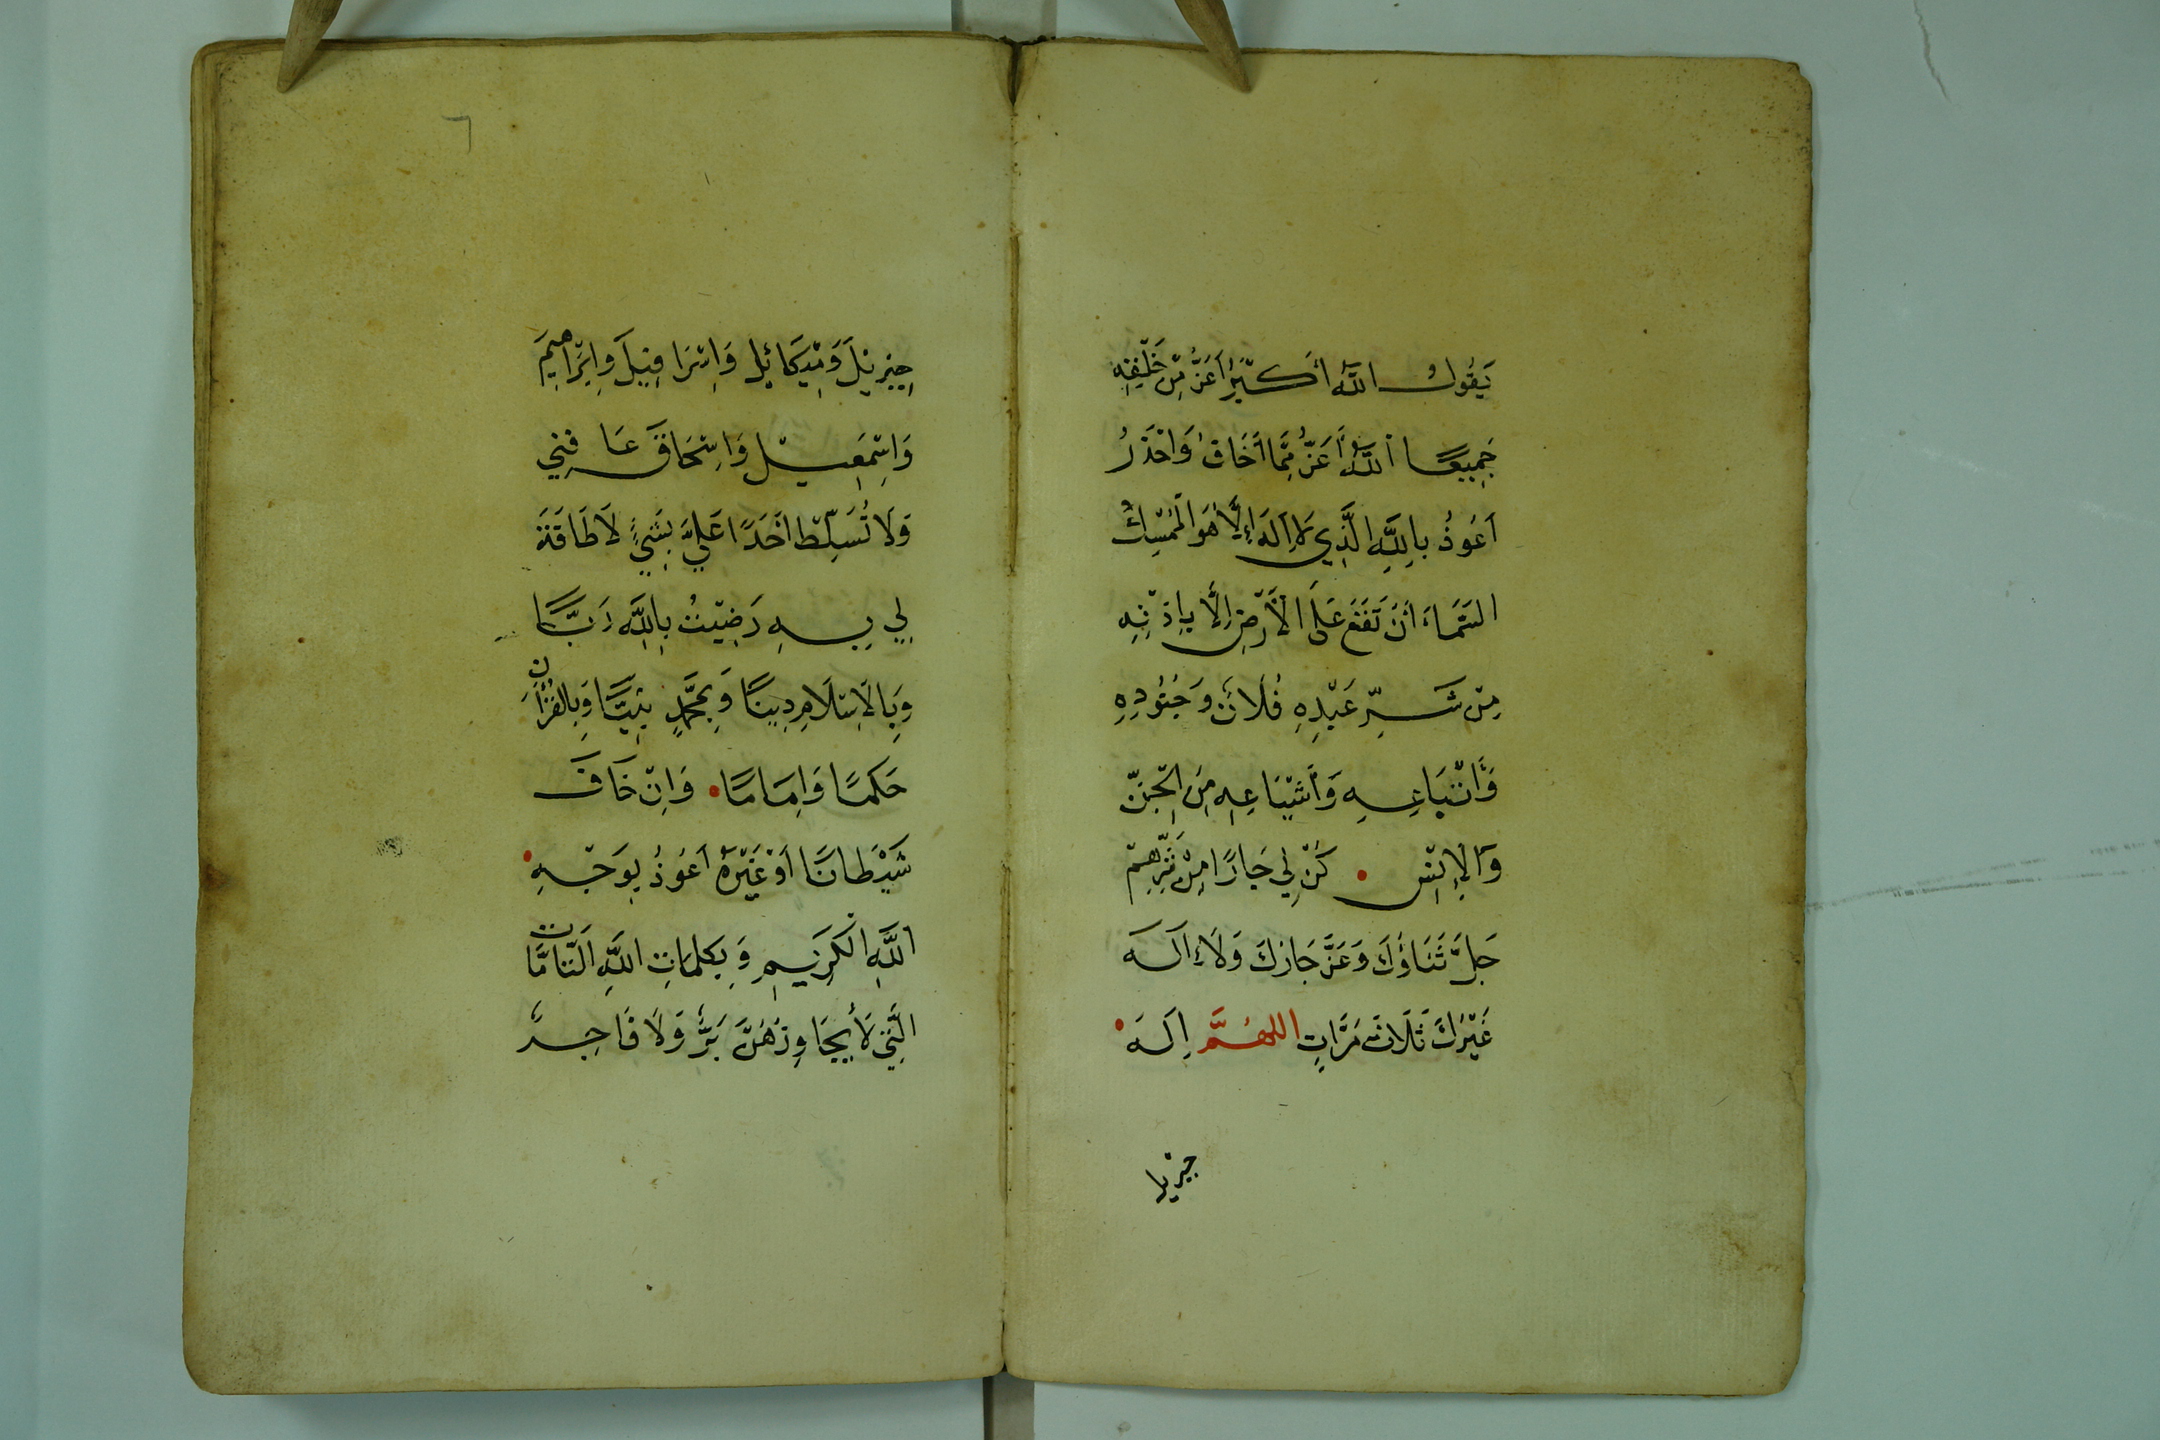 يَقُولُ اللَّهُ أَكْبَرُ أَعَزُّ مِنْ خَلْقِهِ
جَمِيعًا اللَّهُ أَعَزُّ مِمَّا أَخَافُ وَاحْذَرُ
اَعُوذُ بِاللَّهِ الَّذِي لَا اِلَهَ اِلَّا هُوَ الْمُمْسِكُ
السَّمَاءَ أَنْ تَقَعَ عَلَى الْأَرْضِ اِلَّا بِاِذْنِهِ
مِنْ شَرِّ عَبْدِهِ فُلَانٍ وَجُنُودِهِ
وَأَتْبَاعِهِ وَأَشْيَاعِهِ مِنَ الْجِنِّ
وَالْإِنْسِ كُنْ لِي جَارًا مِنْ شَرِّهِمْ
جَلَّ ثَنَاؤُكَ وَعَزَّ جَارُكَ وَلَا اِلَهَ
غَيْرُكَ ثَلَاثَ مَرَّاتٍ اللهُمَّ اِلَهَ
جبريل
٦
جِبْرِيلَ وَمِيكَائِلَ وَاِسْرَافِيلَ وَاِبْرَاهِيمَ
وَاِسْمَعِيلَ وَاِسْحَاقَ عَافِنِي
وَلَا تُسَلِّطْ اَحَدًا عَلَيَّ بِشَيْءٍ لَا طَاقَةَ
لِي بِهِ رَضِيتُ بِاللَّهِ رَبًّا
وَبِالْاِسْلَامِ دِينًا وَبِمُحَمَّدٍ نَبِيًّا وَبِالْقُرْاَنِ
حَكَمًا وَاِمَامًا وَاِنْ خَافَ
شَيْطَانًا اَوْ غَيْرَهُ اَعُوذُ بِوَجْهِ
اللَّهِ الْكَرِيمِ وَبِكَلِمَاتِ اللَّهِ التَّامَّاتِ
الَّتِي لَا يُجَاوِزُهُنَّ بَرٌّ وَلَا فَاجِرٌ